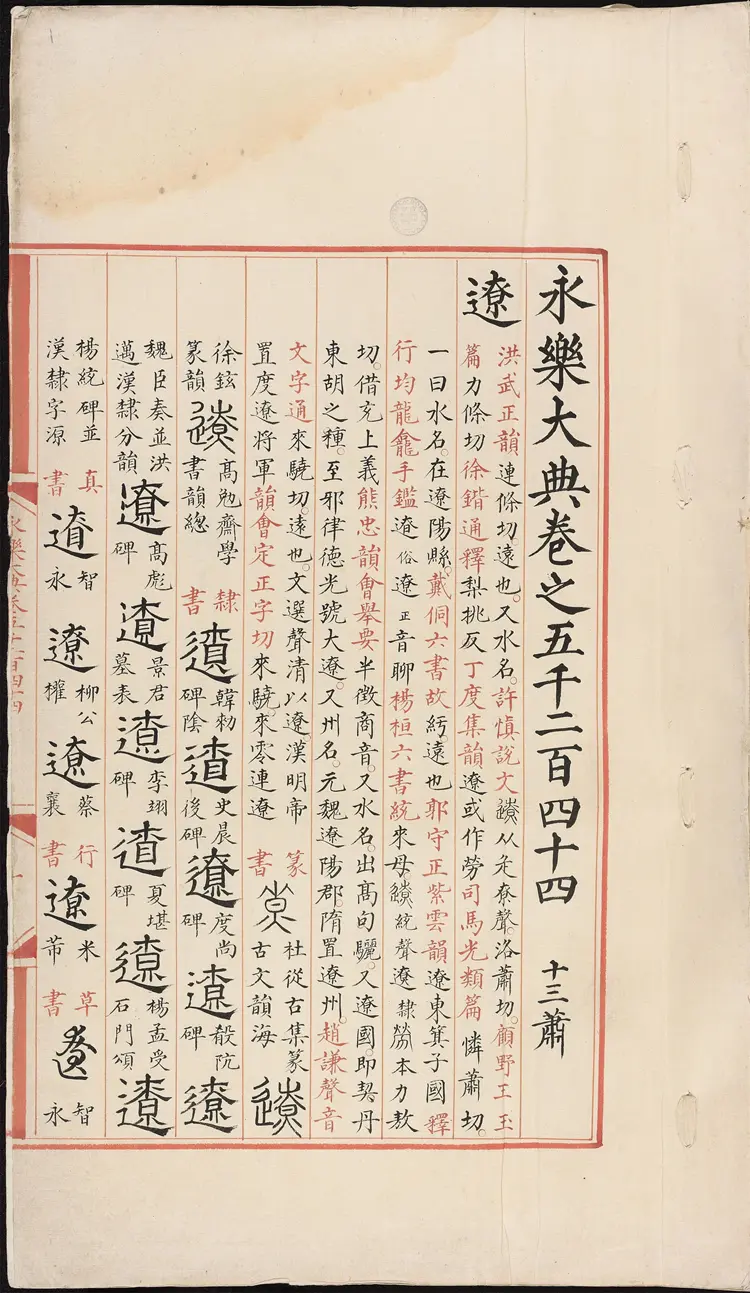 永樂大典卷之五千二百四十四 十三蕭
遼 洪武正韻連條切遠也。又水名。許慎說文遼从辵尞聲。洛蕭切。顧野王玉
篇力條切徐鍇通釋梨桃反丁度集韻遼或作司馬光類篇憐蕭切。
一曰水名。在遼陽縣。戴侗六書故遠也郭守正紫雲韻遼東箕子國釋
行均龍龕手鑑遼俗遼正音聊楊桓六書統來母。遼統聲遼隸本力敖
切。借充上義熊忠韻會舉要半徵商音。又水名。出高句驪。又遼國。即契丹
東胡之種。至邪律德光號大遼。又州名。元魏遼陽郡。隋置遼州。趙謙聲音
文字通來驍切。遠也。文選聲清以遼。漢明帝
置度遼將軍韻會定正字切來驍。來零連遼
篆書 尞 杜從古集篆古文韻海 遼
徐鉉篆韻 遼 高勉齋學書韻總 隸書 遼 韓勑碑陰 遼 史晨後碑 遼 度尚碑 遼 殽阬碑 遼
魏臣奏並洪邁漢隸分韻 遼 高彪碑 遼 景君墓表 遼 李翊碑 遼 夏堪碑 遼 楊孟受石門頌 遼
楊統碑並漢隸字源 真書 遼 智永 遼 柳公權 遼 蔡襄 行書 遼 米芾 草書 遼 智永
永樂大典卷五千二百四十四